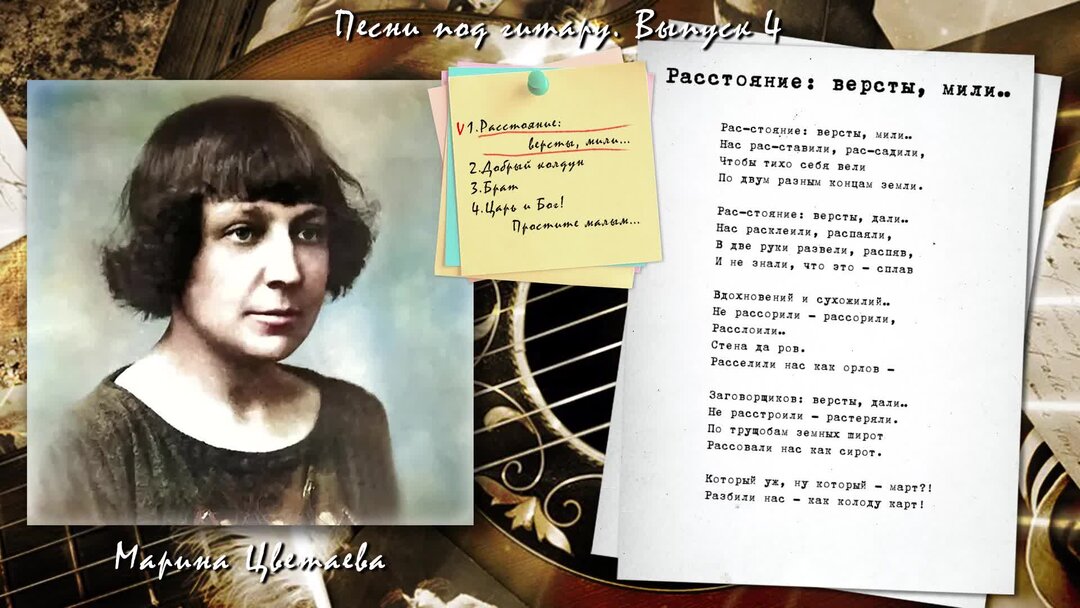 Песни под гитару. Выпуск 4
V 1.Расстояние:
версты, мили...
2.Добрый колдун
3.Брат
4.Царь и Бог!
Простите малым...
Расстояние: версты, мили..
Рас-стояние: версты, мили..
Нас рас-ставили, рас-садили,
Чтобы тихо себя вели
По двум разным концам земли.
Рас-стояние: версты, дали..
Нас расклеили, распаяли,
В две руки развели, распяв,
И не знали, что это - сплав
Вдохновений и сухожилий..
Не рассорили - рассорили,
Расслоили..
Стена да ров.
Расселили нас как орлов -
Заговорщиков: версты, дали..
Не расстроили - растеряли.
По трущобам земных широт
Рассовали нас как сирот.
Который уж, ну который - март?!
Разбили нас - как колоду карт!
Марина Цветаева